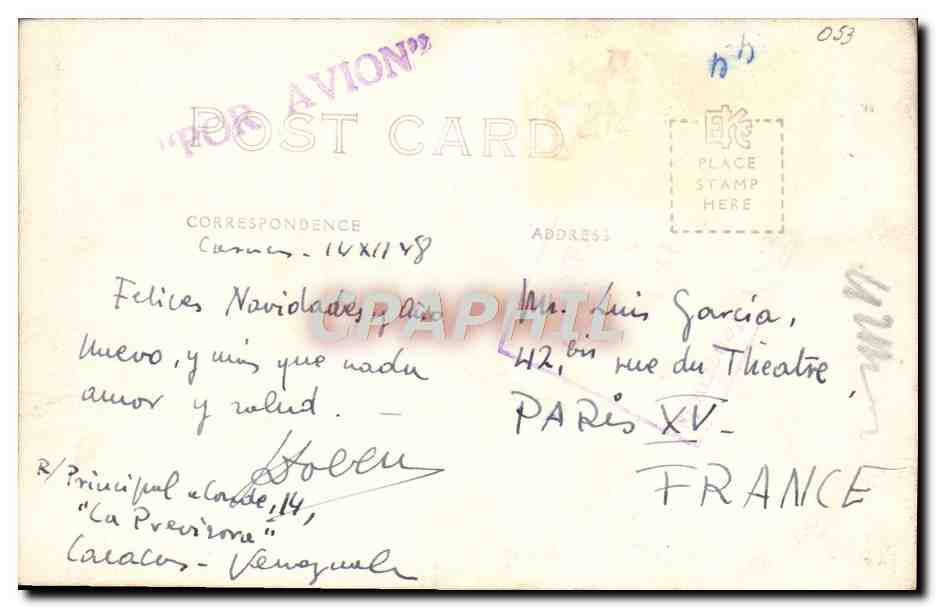 053
"POR AVION"
POST CARD
PLACE
STAMP
HERE
CORRESPONDENCE
ADDRESS
Caracas - 14 XII 48
Felices Navidades y Año
Nuevo, y más que nada
amor y salud. —
R/ Principal a Conde, 14,
"La Previsora"
Caracas - Venezuela
Mr. Luis García,
42, bis rue du Théatre,
PARIS XV -
FRANCE
CPARHIL